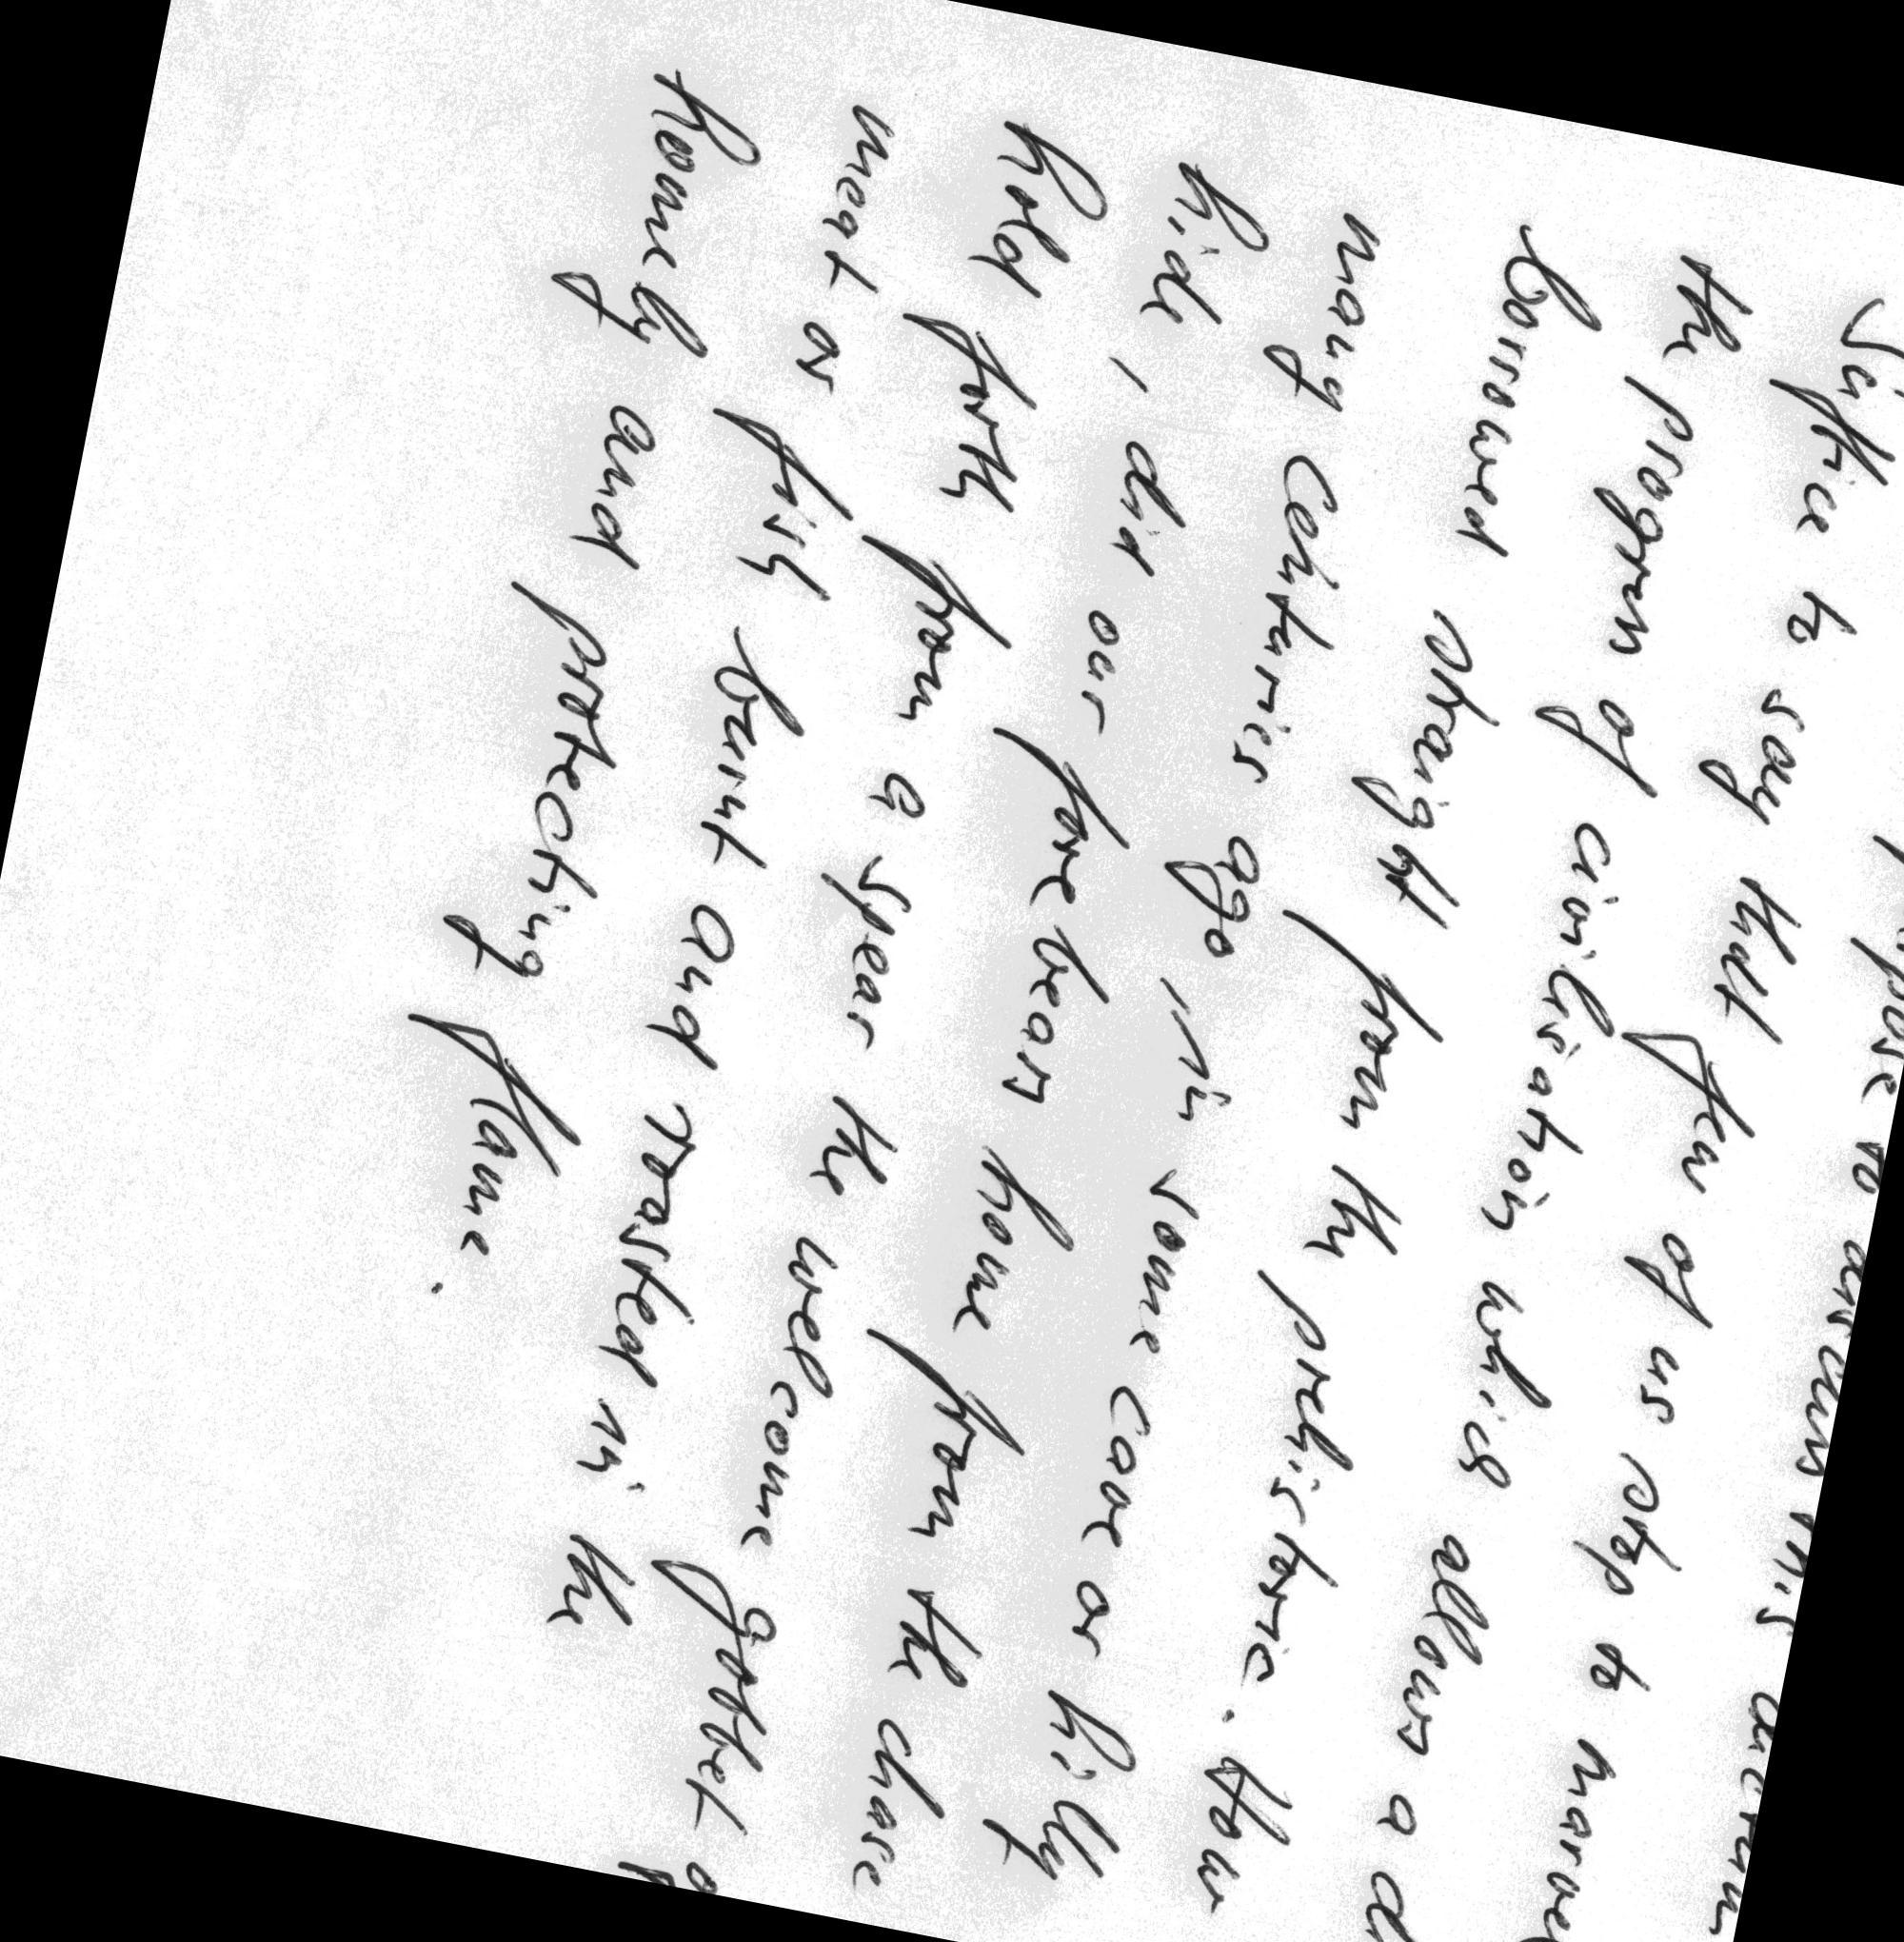 to this
Suffice to say that few of us stop to marvel
the progress of civilisation which allows a
borrowed straight from the prehistoric. How
many centuries ago, in some cave or hilly
hide, did our forebears home from the chase
hold forth from a spear the welcome gobbet of
meat or fish burnt and roasted in the
homely and protecting flame.